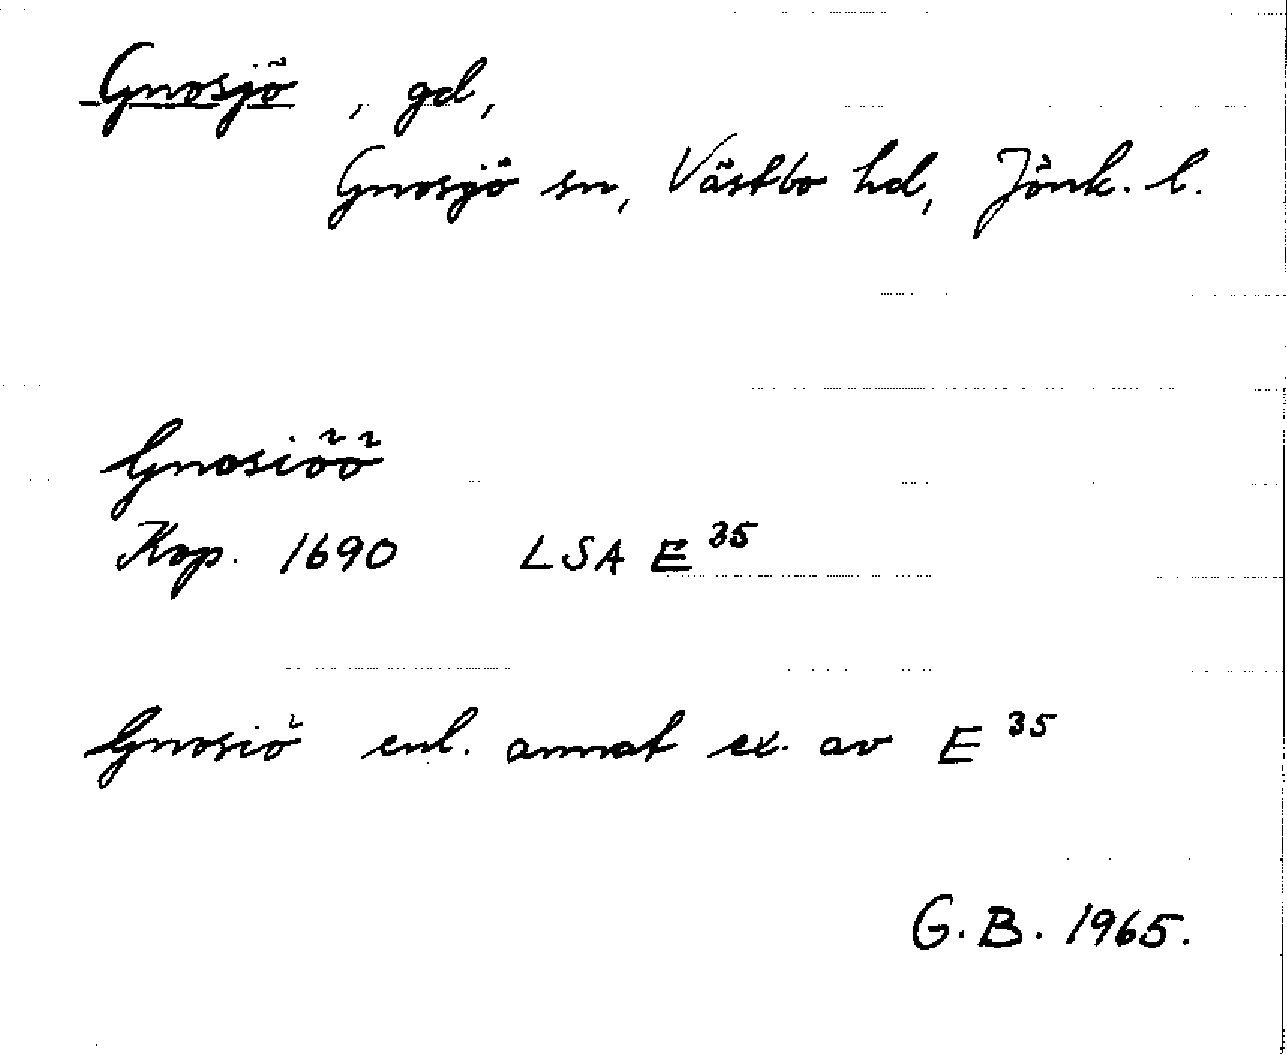 Gnosjö, gd,
Gnosjö sn, Västbo hd, Jönk. l.
Gnosiöö
Kop. 1690 LSA E 35
Gnosiö enl. annat ex. av E 35
G. B. 1965.